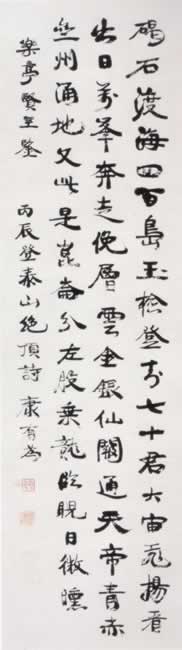 碣石渡海四百島玉檢登封七十君大宙飛揚看
出日萬峯奔走俛層雲金銀仙闕通天帝青赤
州涌地文此是崑崙分左股乘龍臨睨日微曛
樂亭賢鑒 丙辰登泰山絕頂詩 康有為